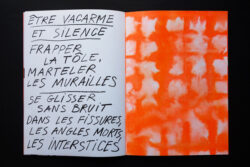 ETRE VACARME
ET SILENCE
FRAPPER
LA TÔLE,
MARTELER
LES MURAILLES
SE GLISSER
SANS BRUIT
DANS LES FISSURES,
LES ANGLES MORTS,
LES INTERSTICES